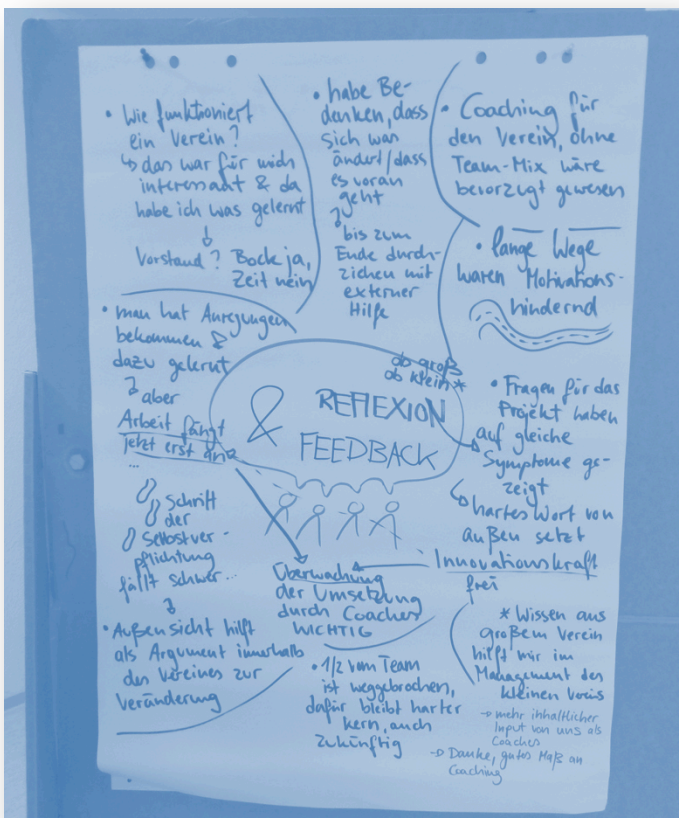 • Wie funktioniert
ein Verein?
↳ das war für mich
interessant & da
habe ich was gelernt
↓
Vorstand? Bock ja,
Zeit nein
• habe Be-
denken, dass
sich was
ändert/dass
es voran
geht
bis zum
Ende durch-
ziehen mit
externer
Hilfe
• Coaching für
den Verein, ohne
Team-Mix wäre
bevorzugt gewesen
• lange Wege
waren Motivations-
hindernd
• man hat Anregungen
bekommen &
dazu gelernt
aber
Arbeit fängt
jetzt erst an
...
Schrift
der
Selbstver-
pflichtung
fällt schwer...
• Außensicht hilft
als Argument innerhalb
des Vereines zur
Veränderung
ob groß
ob klein *
& REFLEXION
FEEDBACK
• Fragen für das
Projekt haben
auf gleiche
Symptome ge-
zeigt
↳ hartes Wort von
außen setzt
Innovationskraft
frei
Überwachung
der Umsetzung
durch Coaches
WICHTIG
• 1/2 vom Team
ist weggebrochen,
dafür bleibt harter
Kern, auch
zukünftig
* Wissen aus
großem Verein
hilft mir im
Management des
kleinen
→ mehr inhaltlicher
Input von uns als
Coaches
→ Danke, gutes Maß an
Coaching